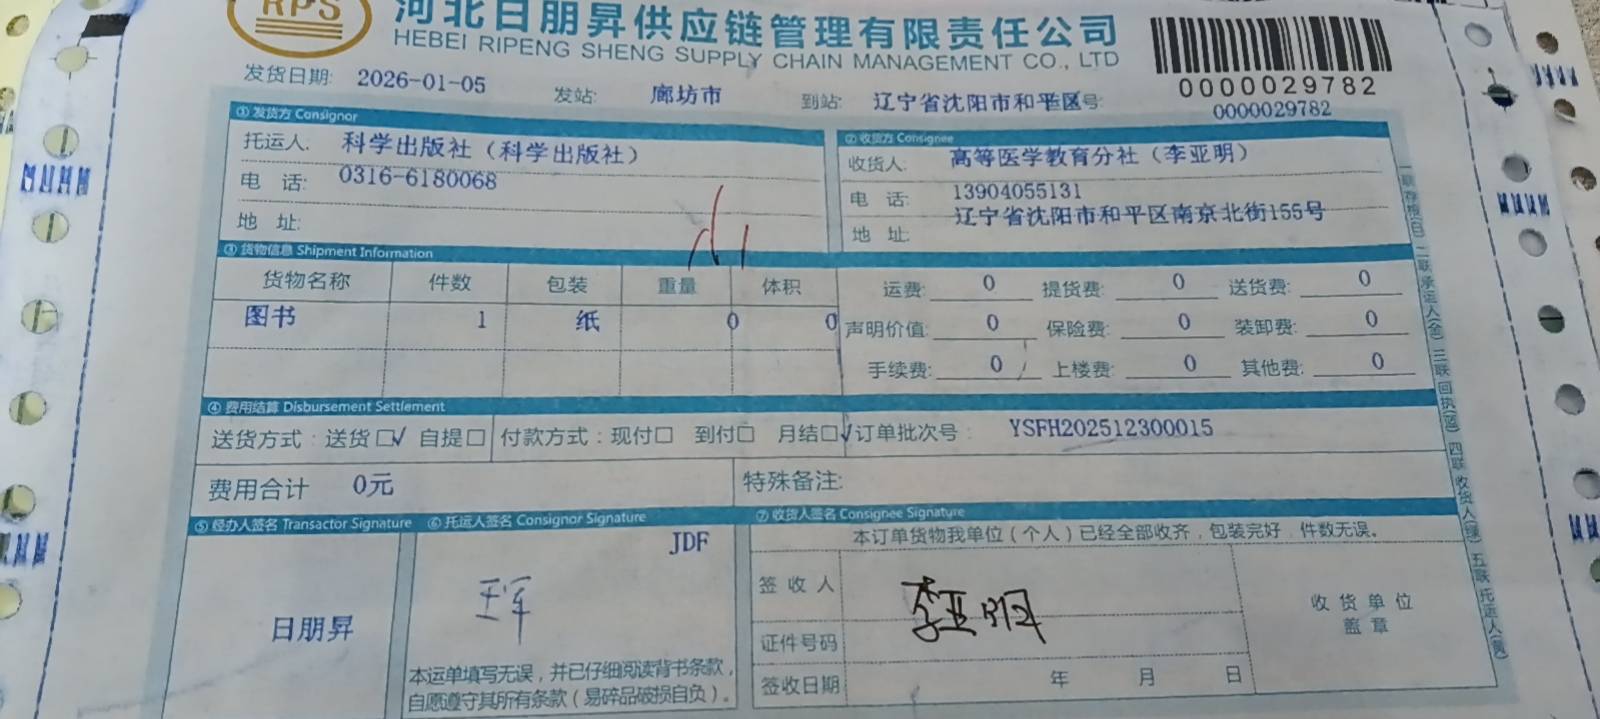 RPS
河北日朋昇供应链管理有限责任公司
HEBEI RIPENG SHENG SUPPLY CHAIN MANAGEMENT CO., LTD
0000029782
发货日期: 2026-01-05 发站: 廊坊市 到站: 辽宁省沈阳市和平区号: 0000029782
① 发货方 Consignor
托运人: 科学出版社（科学出版社）
电 话: 0316-6180068
地 址:
② 收货方 Consignee
收货人: 高等医学教育分社（李亚明）
电 话: 13904055131
地 址: 辽宁省沈阳市和平区南京北街155号
③ 货物信息 Shipment Information
货物名称 件数 包装 重量 体积
图书 1 纸 0 0
运费: 0 提货费: 0 送货费: 0
声明价值: 0 保险费: 0 装卸费: 0
手续费: 0 上楼费: 0 其他费: 0
④ 费用结算 Disbursement Settlement
送货方式：送货□√ 自提□ 付款方式：现付□ 到付□ 月结□√ 订单批次号： YSFH202512300015
费用合计 0元 特殊备注:
⑤ 经办人签名 Transactor Signature
日朋昇
⑥ 托运人签名 Consignor Signature
JDF
本运单填写无误，并已仔细阅读背书条款，
自愿遵守其所有条款（易碎品破损自负）。
⑦ 收货人签名 Consignee Signature
本订单货物我单位（个人）已经全部收齐，包装完好，件数无误。
签 收 人 李亚明
证件号码
签收日期 年 月 日
收 货 单 位
盖 章
一联存根(白) 二联承运人(金) 三联回执(蓝) 四联收货人(绿) 五联托运人(黄)